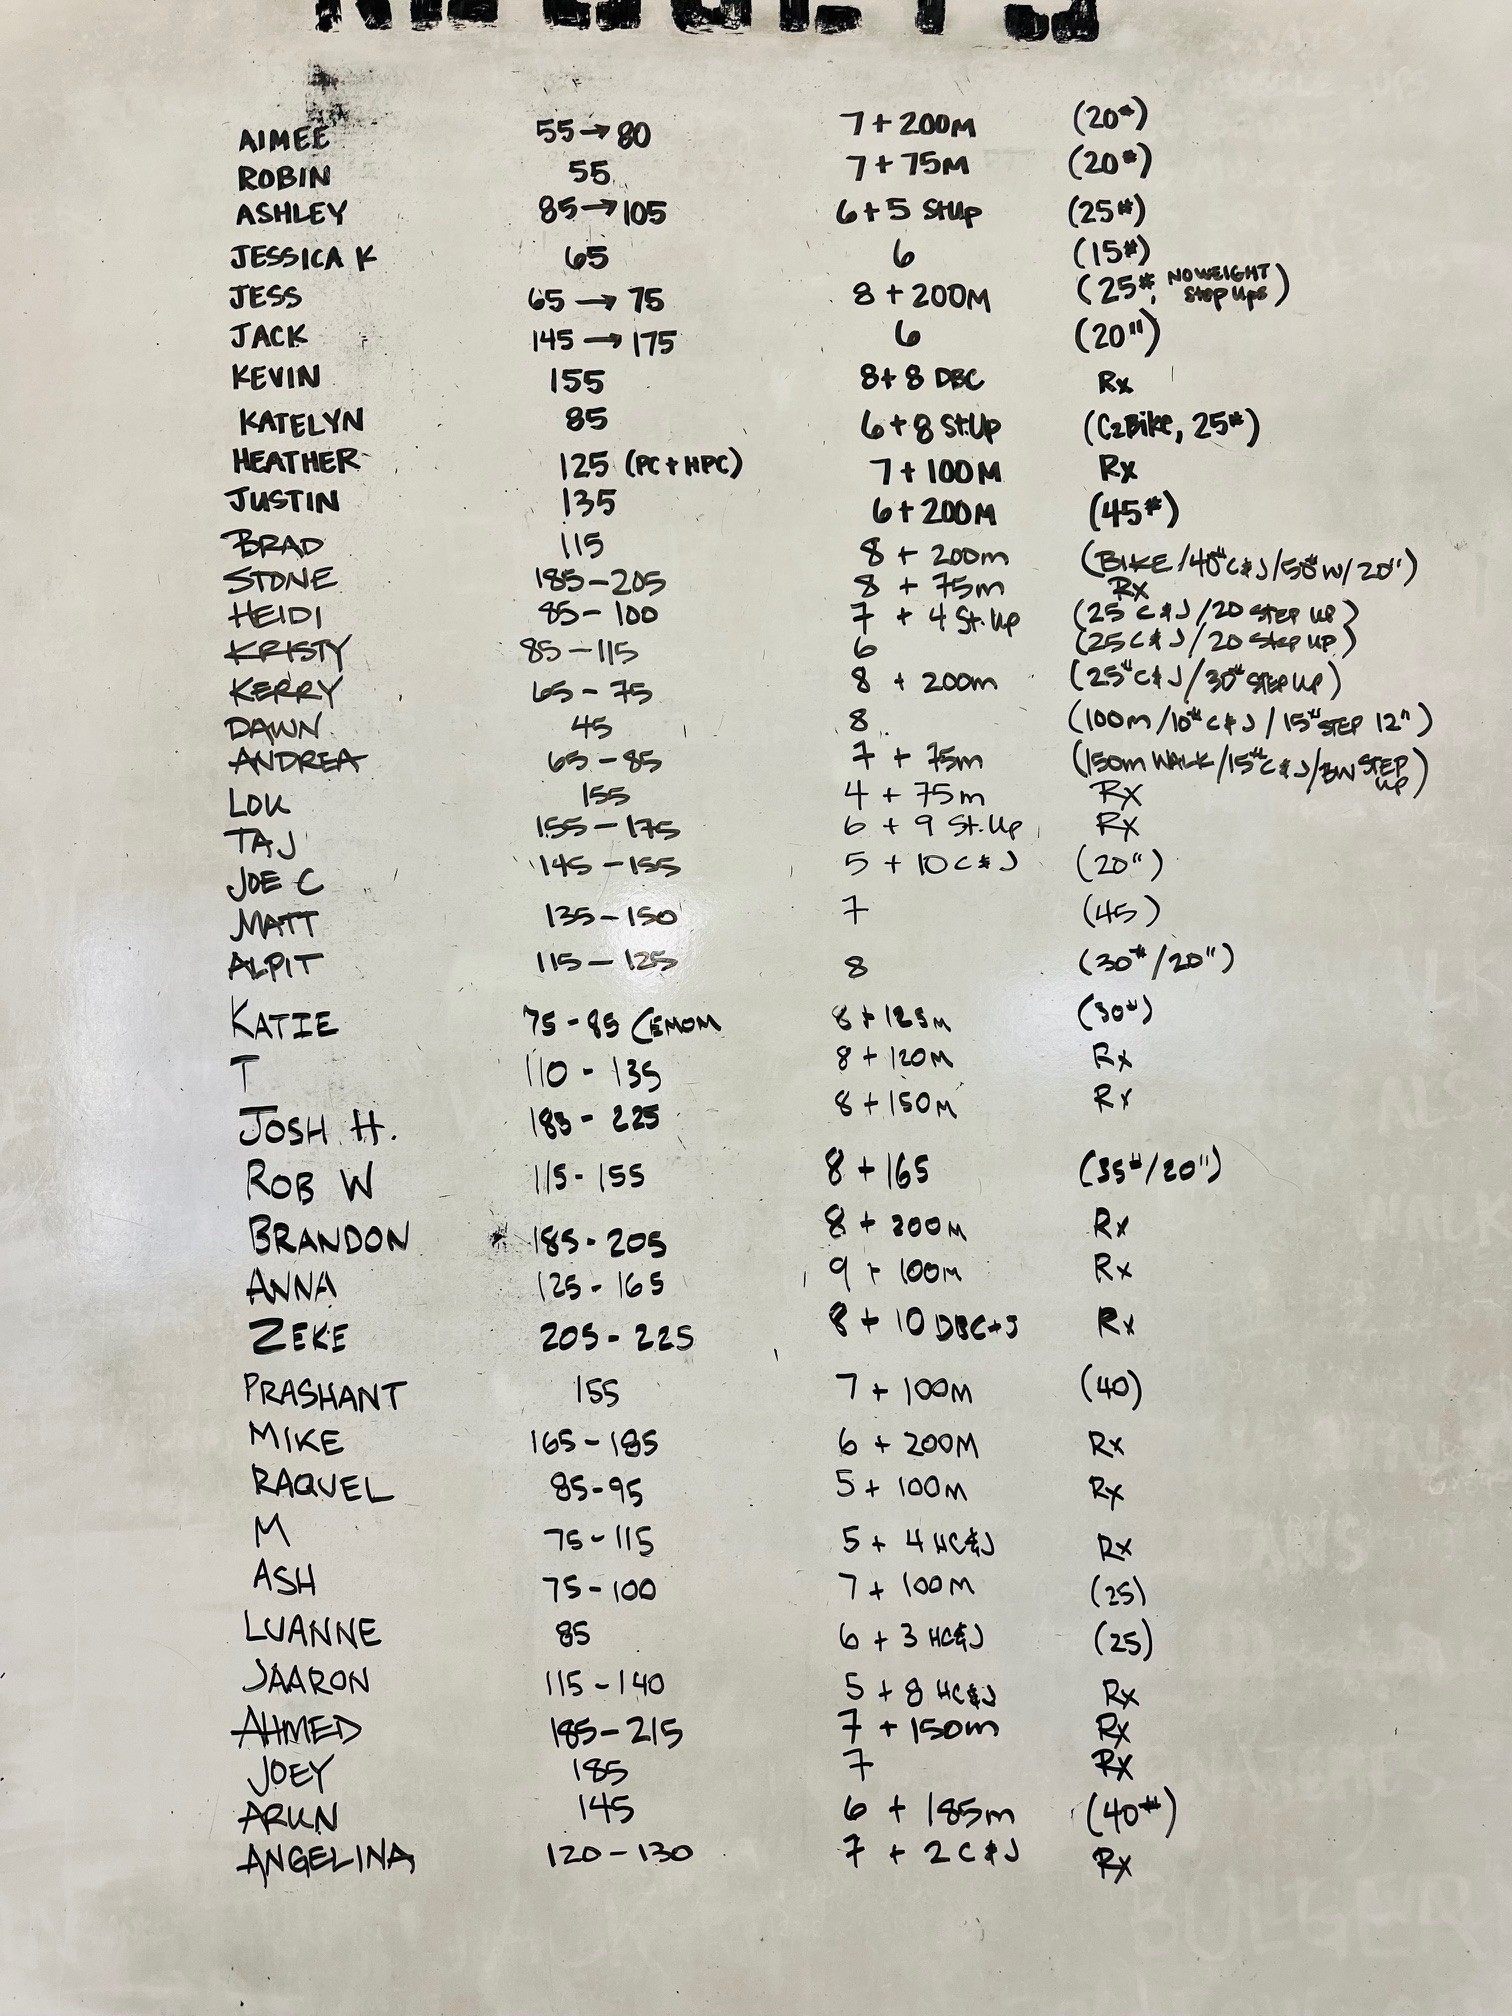 AIMEE 55→80 7+200M (20#)
ROBIN 55 7+75M (20#)
ASHLEY 85→105 6+5 StUp (25#)
JESSICA K 65 6 (15#)
JESS 65→75 8+200M (25#, NO WEIGHT Step Ups)
JACK 145→175 6 (20")
KEVIN 155 8+8 DBC Rx
KATELYN 85 6+8 St.Up (C2Bike, 25#)
HEATHER 125 (PC+HPC) 7+100M Rx
JUSTIN 135 6+200M (45#)
BRAD 115 8 + 200m (BIKE/40#C&J/50#W/20")
STONE 185-205 8 + 75m Rx
HEIDI 85-100 7 + 4 St.Up (25 C&J/20 STEP UP)
KRISTY 85-115 6 (25 C&J/20 Step UP)
KERRY 65-75 8 + 200m (25#C&J/30#STEP UP)
DAWN 45 8 (100m/10#C&J/15#STEP 12")
ANDREA 65-85 7 + 75m (150m WALK/15#C&J/BW STEP UP)
LOU 155 4 + 75m Rx
TAJ 155-175 6 + 9 St.Up Rx
JOE C 145-155 5 + 10 C&J (20")
MATT 135-150 7 (45)
ALPIT 115-125 8 (30#/20")
KATIE 75-85 (EMOM 8+125M (30#)
T 110-135 8+120M Rx
JOSH H. 185-225 8+150M Rx
ROB W 115-155 8+165 (35#/20")
BRANDON 185-205 8+200M Rx
ANNA 125-165 9+100M Rx
ZEKE 205-225 8+10 DBC+J Rx
PRASHANT 155 7+100M (40)
MIKE 165-185 6 + 200M Rx
RAQUEL 85-95 5+ 100M Rx
M 75-115 5+ 4 HC&J Rx
ASH 75-100 7+ 100M (25)
LUANNE 85 6 + 3 HC&J (25)
JAARON 115-140 5 + 8 HC&J Rx
AHMED 185-215 7 + 150m Rx
JOEY 185 7 Rx
ARUN 145 6 + 185m (40#)
ANGELINA 120-130 7 + 2 C&J Rx